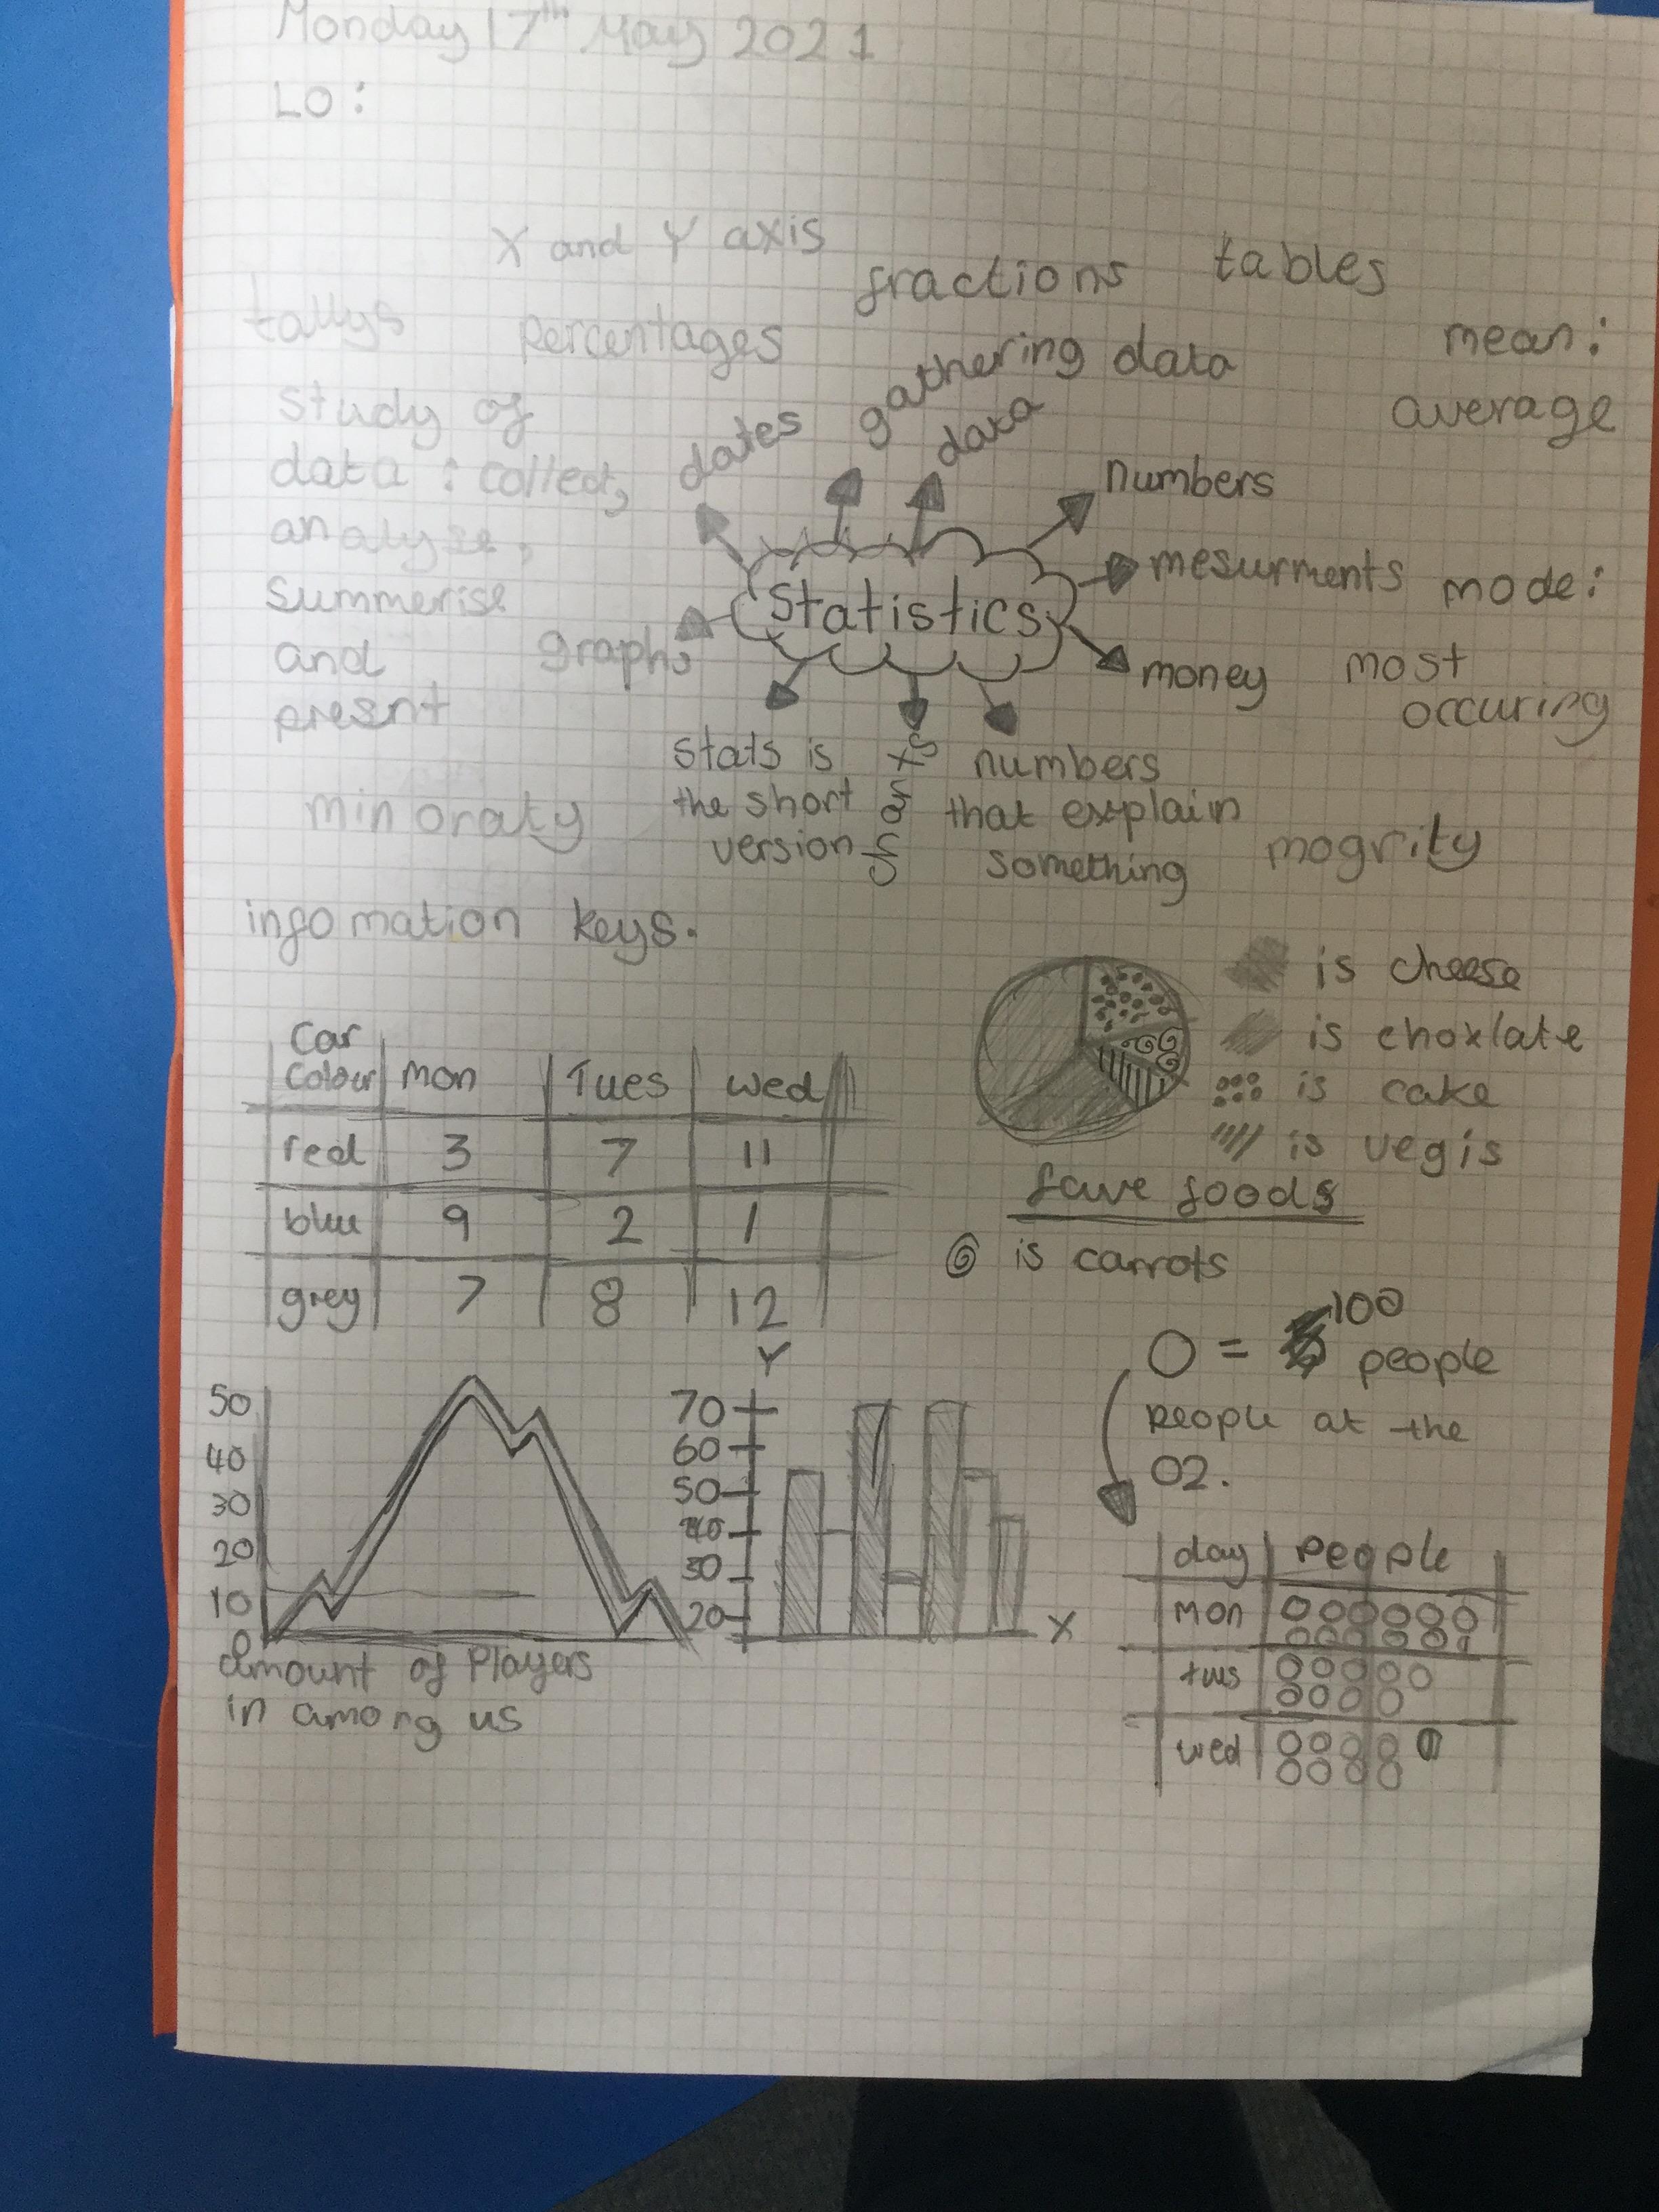 Monday 17th May 2021
LO:
X and Y axis
fractions
tables
tallys
percentages
gathering data
mean:
average
study of
data: collect,
analyse,
summerise
and
presnt
dates
data
numbers
mesurments
mode:
most
occuring
Statistics
graphs
money
stats is
the short
version
charts
numbers
that explain
something
minoraty
mogrity
infomation keys.
is cheese
is choxlate
is cake
is vegis
fave foods
is carrots
Car
Colour mon Tues wed
red 3 7 11
blue 9 2 1
grey 7 8 12
O = 100
people
people at the
O2.
50
40
30
20
10
0
amount of Players
in among us
Y
70
60
50
40
30
20
X
day people
mon
tues
wed